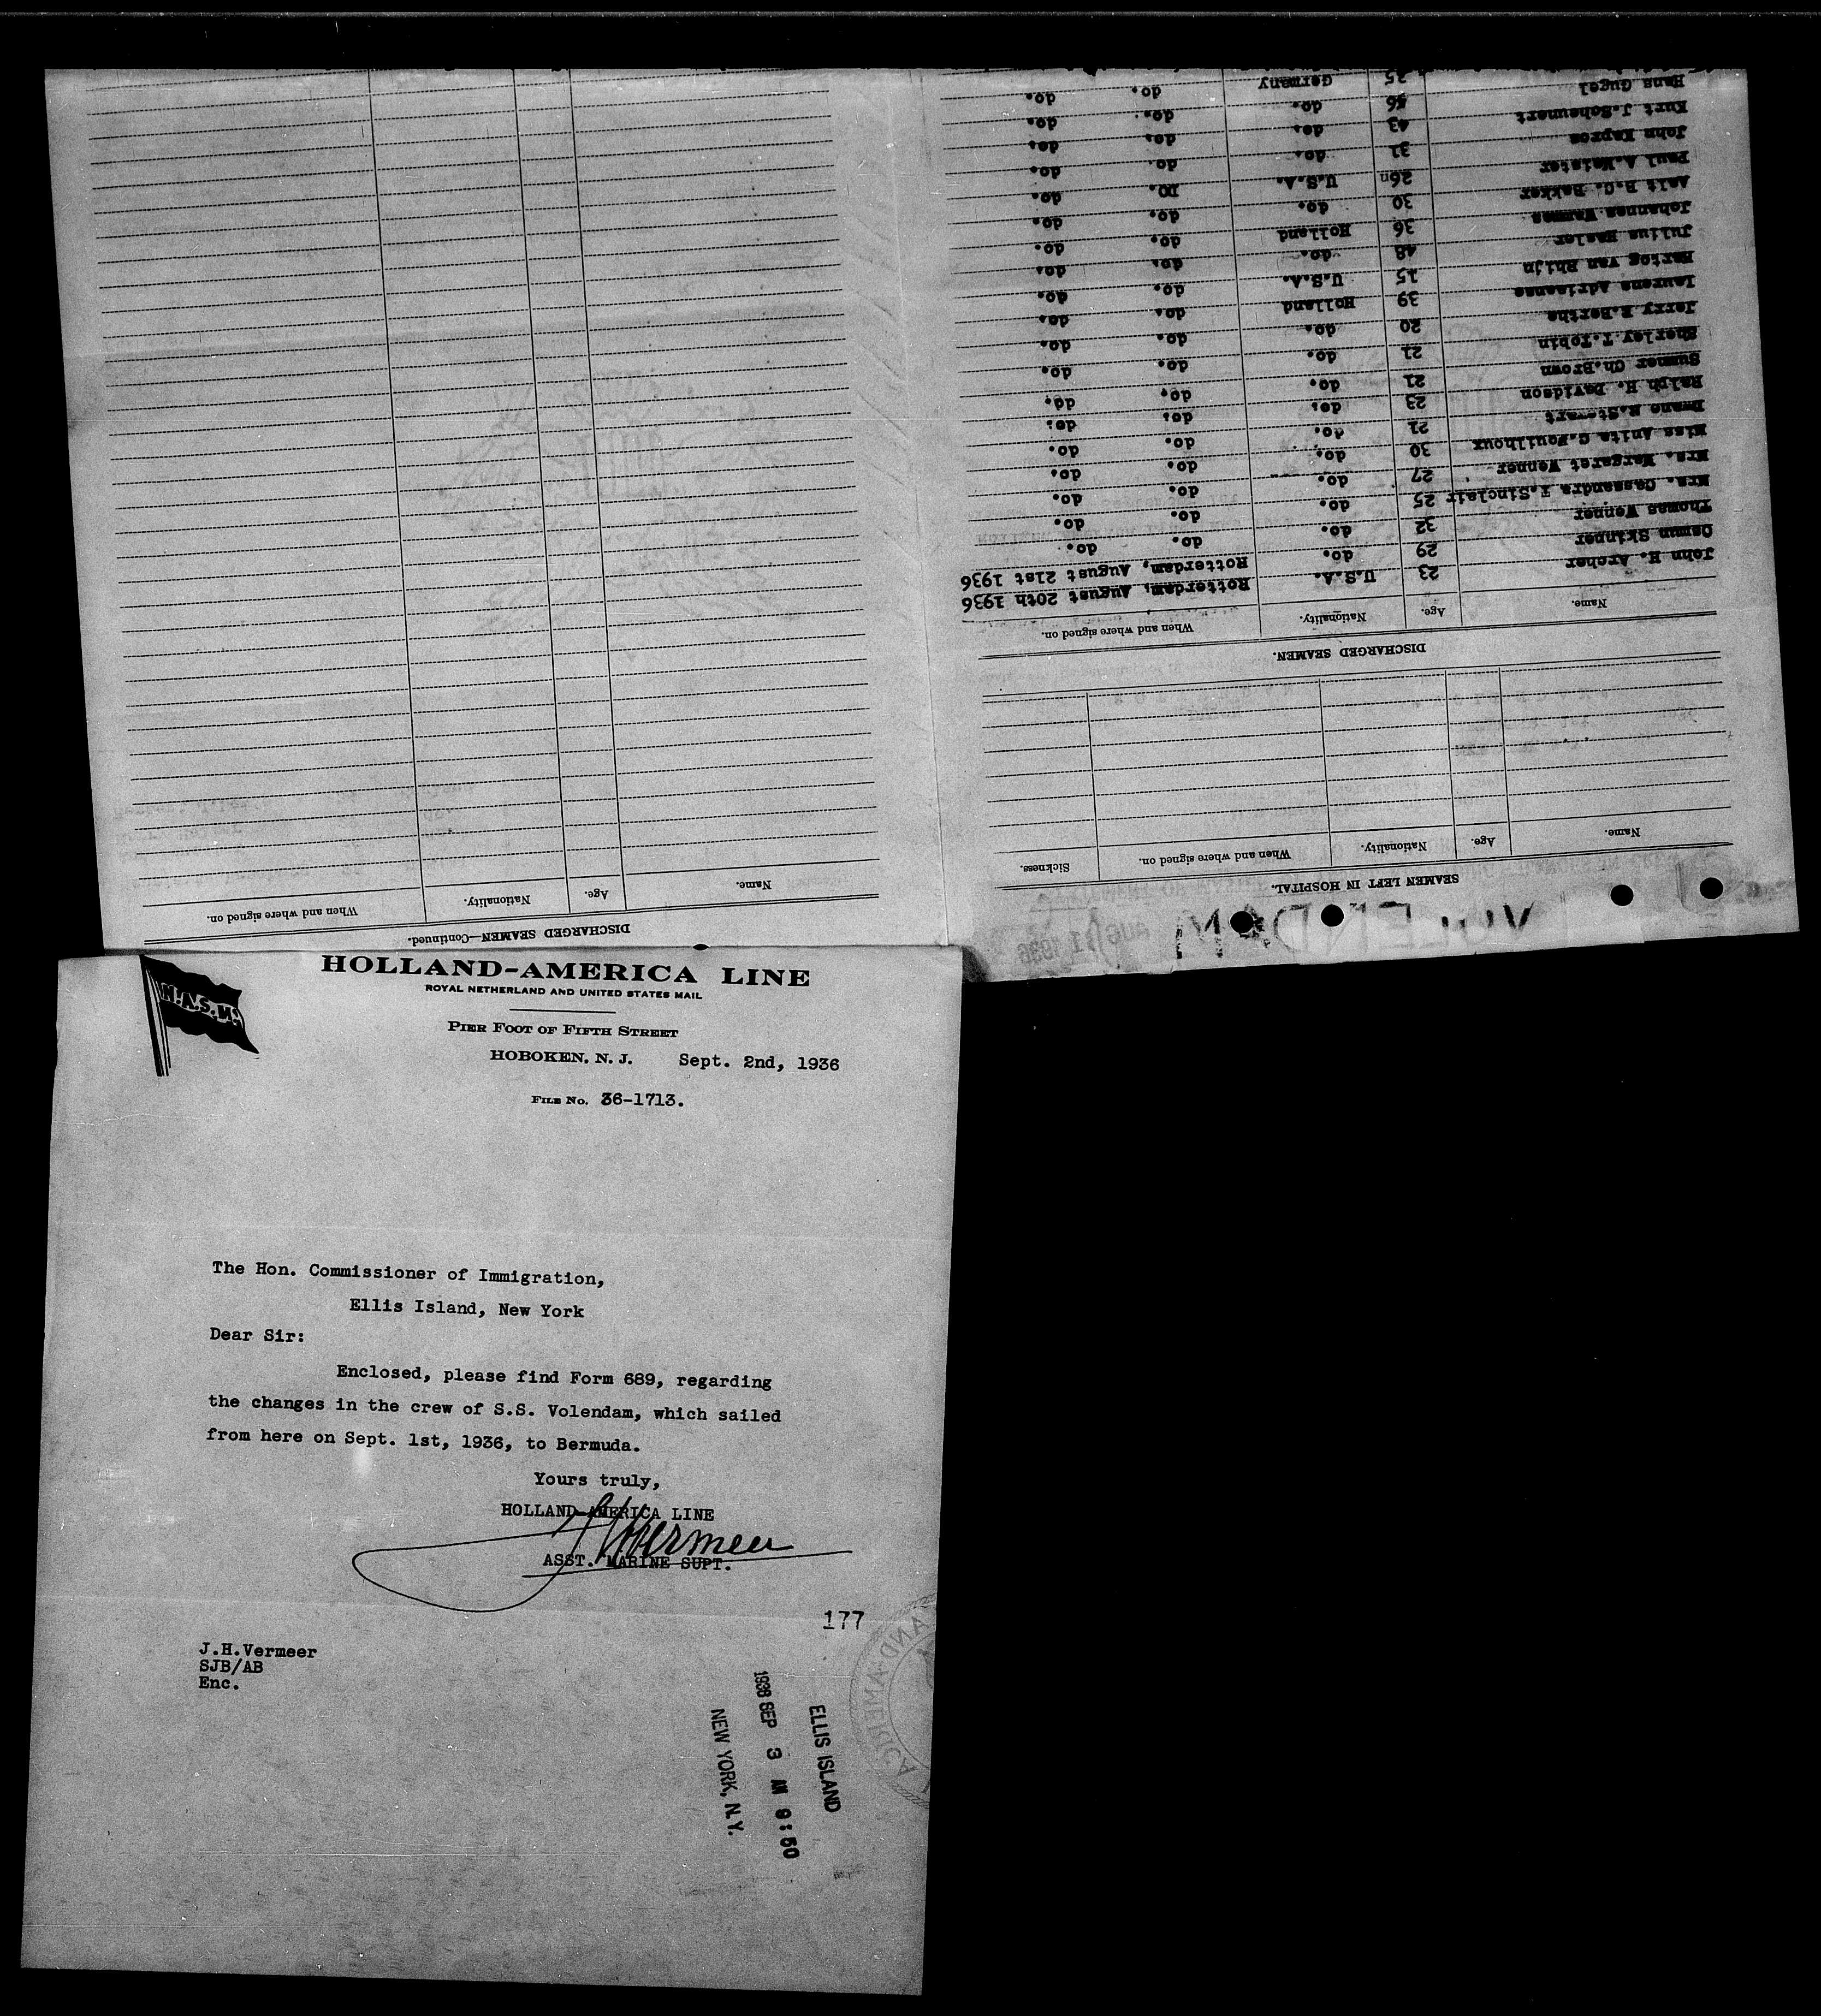 SEAMEN LEFT IN HOSPITAL.
Name. Age. Nationality. When and where signed on. Sickness.
DISCHARGED SEAMEN.
Name. Age. Nationality. When and where signed on.
John H. Archer 23 U.S.A. Rotterdam, August 20th 1936
Osmun Skinner 29 do. Rotterdam, August 21st 1936
Thomas Wenner 32 do. do. do.
Mrs. Cassandra T.Sinclair 25 do. do. do.
Mrs. Margaret Wenner 27 do. do. do.
Miss Anita C.Fouilhoux 30 do. do. do.
Duane R.Stewart 21 do. do. do.
Ralph H. Davidson 23 do. do. do.
Sumner Ch.Brown 21 do. do. do.
Sherley T.Tobin 21 do. do. do.
Jerry E.Berthe 20 do. do. do.
Laurens Adriaanse 39 Holland do. do.
Hartog van Rhijn 15 U.S.A. do. do.
Julius Hasler 48 do. do. do.
Johannes Wammes 36 Holland do. do.
Aalt B.C. Bakker 30 do. do. do.
Paul A.Meister 26n U.S.A. DO. do.
John Kapros 31 do. do. do.
Kurt J.Scheunert 43 do. do. do.
Hans Gugel 56 do. do. do.
35 Germany do. do.
DISCHARGED SEAMEN—Continued.
Name. Age. Nationality. When and where signed on.
N.A.S.M.
HOLLAND-AMERICA LINE
ROYAL NETHERLAND AND UNITED STATES MAIL
PIER FOOT OF FIFTH STREET
HOBOKEN, N. J. Sept. 2nd, 1936
FILE No. 36-1713.
The Hon. Commissioner of Immigration,
Ellis Island, New York
Dear Sir:
Enclosed, please find Form 689, regarding
the changes in the crew of S.S. Volendam, which sailed
from here on Sept. 1st, 1936, to Bermuda.
Yours truly,
HOLLAND-AMERICA LINE
JHVermeer
ASST. MARINE SUPT.
177
J.H.Vermeer
SJB/AB
Enc.
ELLIS ISLAND
1936 SEP 3 AM 9:50
NEW YORK, N.Y.